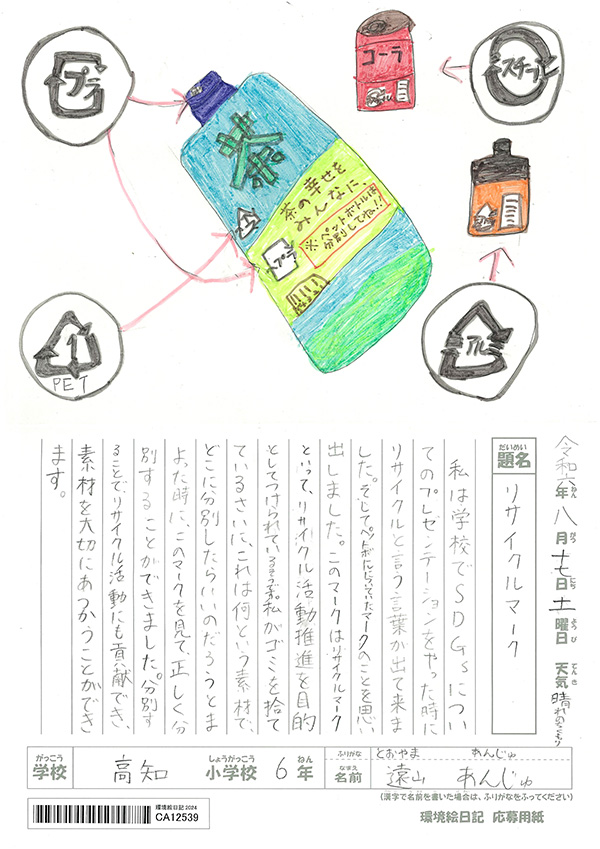 プラ
スチール
コーラ
茶
幸せを
茶のみなんに、
PET
1
アル
令和六年八月十七日土曜日 天気 晴れのちくもり
ねん
がつ
にち
ようび
てんき
だいめい
題名
リサイクルマーク
私は学校でSDGsについ
てのプレゼンテーションをやった時に
リサイクルと言う言葉が出て来ま
した。そしてペットボトルについていたマークのことを思い
出しました。このマークはリサイクルマーク
といって、リサイクル活動推進を目的
としてつけられているそうです。私がゴミを捨て
ているさいに、これは何という素材で
どこに分別したらいいのだろうとま
よった時に、このマークを見て、正しく分
別することができました。分別す
ることで、リサイクル活動にも貢献でき、
素材を大切にあつかうことができ
ます。
がっこう しょうがっこう ねん
学校 高知 小学校 6年
ふりがな とおやま あんじゅ
なまえ
名前 遠山 あんじゅ
(漢字で名前を書いた場合は、ふりがなをふってください)
環境絵日記2024
CA12539
環境絵日記 応募用紙